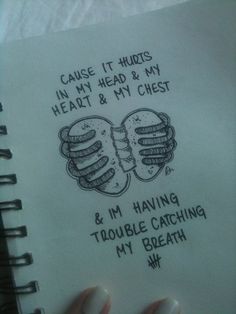 CAUSE IT HURTS
IN MY HEAD & MY
HEART & MY CHEST
& IM HAVING
TROUBLE CATCHING
MY BREATH